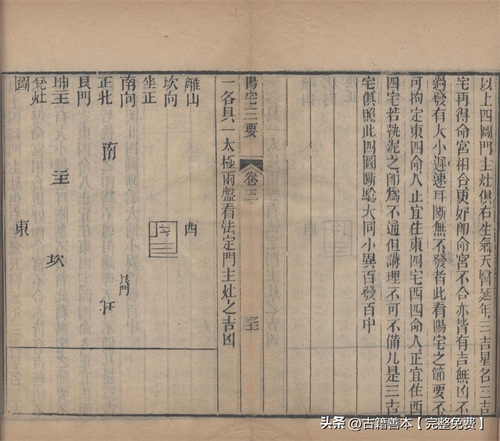 以上四圖門主灶俱右生氣天醫延年三吉星名三吉
宅再得命宮相合更好卽命宮不合亦皆有吉無凶不
過發有大小遲速耳斷無不發者此看陽宅之節要不
可拘定東四命人正宜住東四宅西四命人正宜住西
四宅若執泥之卽爲不通但講理不可不備凡是三吉
宅俱照此四圖斷驗大同小異百發百中
陽宅三要
卷三
一各具一太極兩盤看法定門主灶之吉凶
離山
坎向
坐正
南向
正北
艮門
坤主
兌灶
圖
西
南
主
坎
東
头条 @古籍善本【完整免费】